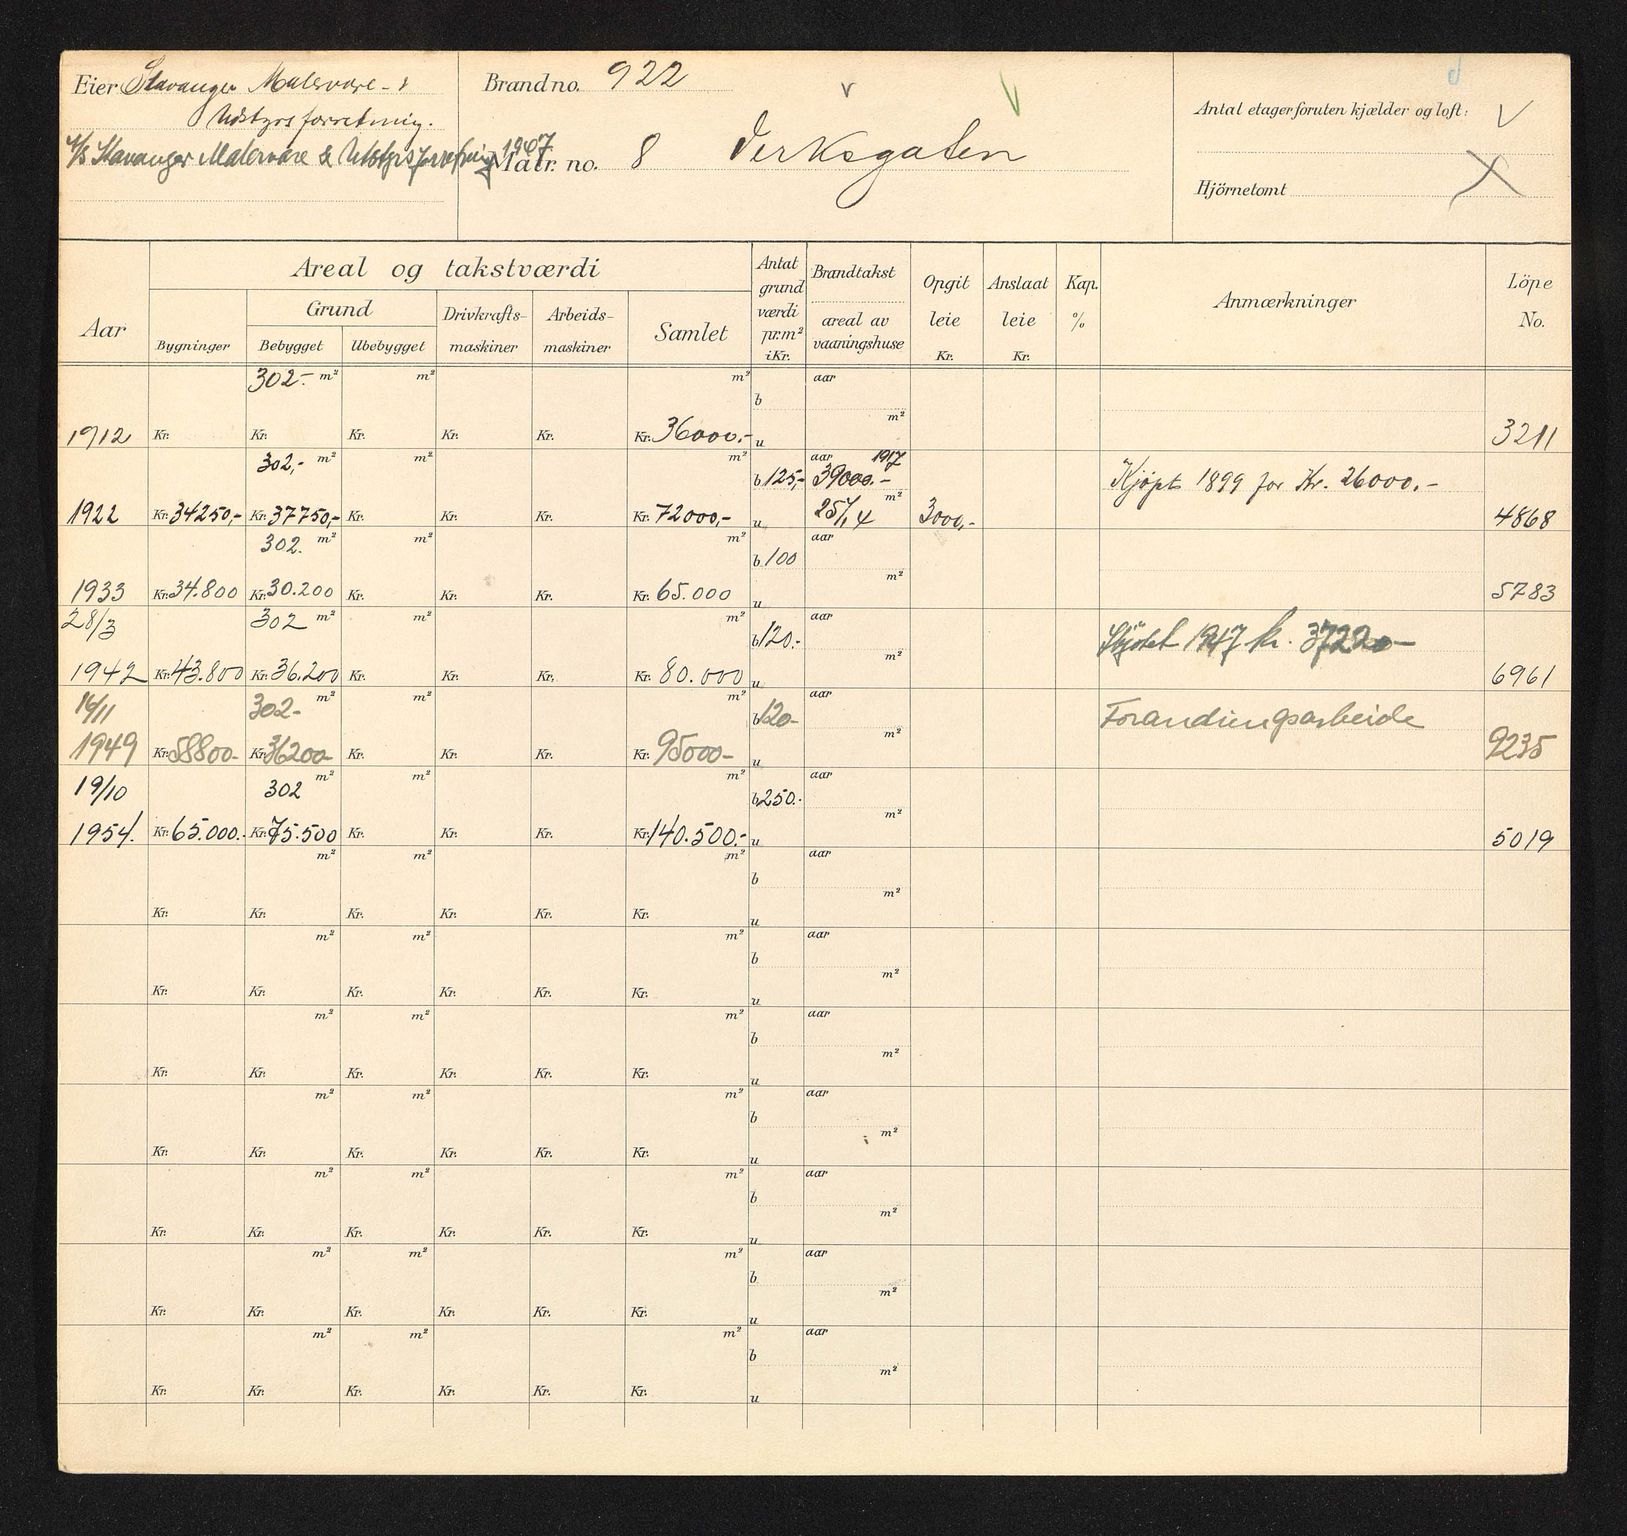 Eier Stavanger Malervare- &
Utstyrsforretning.
A/S Stavanger Malervare & Utstyrsforretning 1947
Brand no. 922
v
V
Matr. no. 8 Verksgaten
Antal etager foruten kjælder og loft: V
Hjörnetomt X
Aar
Areal og takstværdi
Grund
Bygninger
Bebygget
Ubebygget
Drivkrafts-
maskiner
Arbeids-
maskiner
Samlet
Antat
grund
værdi
pr. m²
i Kr.
Brandtakst
areal av
vaaningshuse
Opgit
leie
Kr.
Anslaat
leie
Kr.
Kap.
%
Anmærkninger
Löpe
No.
302.- m² m² m² b aar
m²
1912 Kr. Kr. Kr. Kr. Kr. Kr. 36000.- u 3211
302,- m² m² m² b 125,- aar 1917
39000.- Kjøpt 1899 for Kr. 26000.-
m²
1922 Kr. 34250,- Kr. 37750,- Kr. Kr. Kr. Kr. 72000,- u 257,4 3000,- 4868
302. m² m² m² b 100 aar
m²
1933 Kr. 34.800 Kr. 30.200 Kr. Kr. Kr. Kr. 65.000 u 5783
28/3 302 m² m² m² b 120.- aar
Skjøtet 1947 kr. 37220-
m²
1942 Kr. 43.800 Kr. 36.200 Kr. Kr. Kr. Kr. 80.000 u 6961
16/11 302- m² m² m² b 120- aar
Forandringsarbeide
m²
1949 Kr. 58800- Kr. 36200- Kr. Kr. Kr. Kr. 95000- u 9235
19/10 302 m² m² m² b 250.- aar
m²
1954. Kr. 65.000.- Kr. 75.500 Kr. Kr. Kr. Kr. 140.500.- u 5019
m² m² m² b aar
m²
Kr. Kr. Kr. Kr. Kr. Kr. u
m² m² m² b aar
m²
Kr. Kr. Kr. Kr. Kr. Kr. u
m² m² m² b aar
m²
Kr. Kr. Kr. Kr. Kr. Kr. u
m² m² m² b aar
m²
Kr. Kr. Kr. Kr. Kr. Kr. u
m² m² m² b aar
m²
Kr. Kr. Kr. Kr. Kr. Kr. u
m² m² m² b aar
m²
Kr. Kr. Kr. Kr. Kr. Kr. u
m² m² m² b aar
m²
Kr. Kr. Kr. Kr. Kr. Kr. u